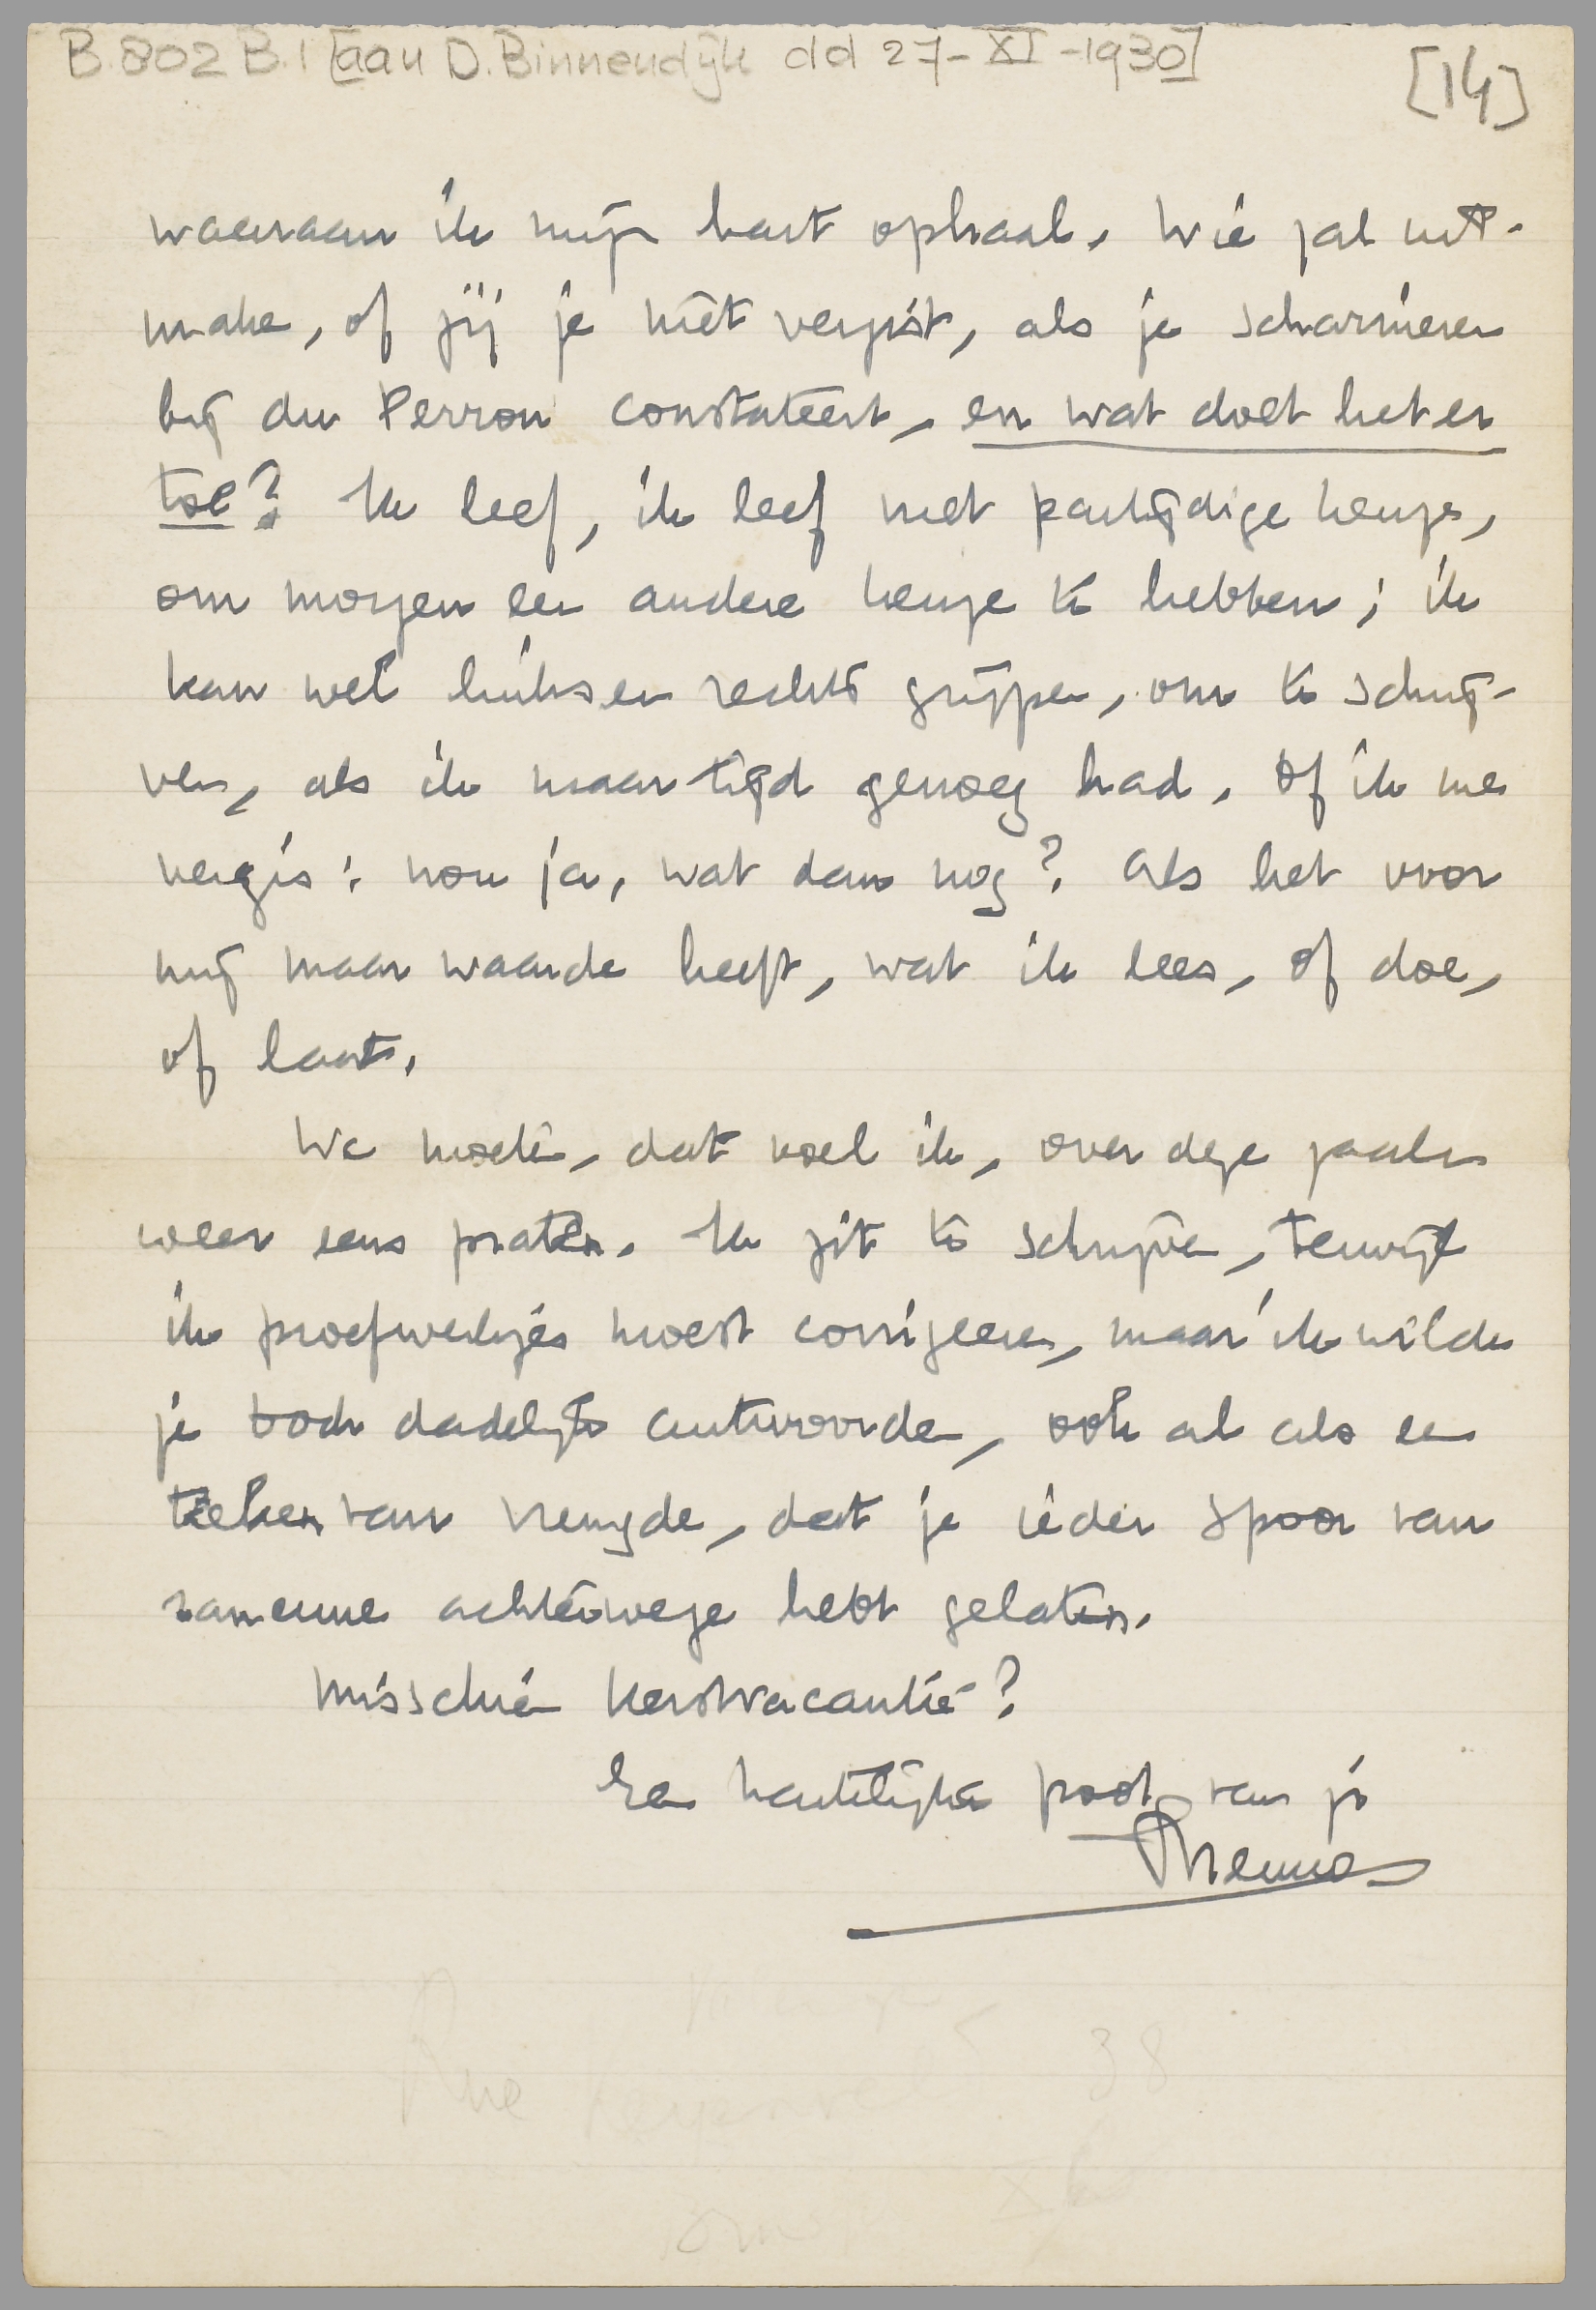 B.802 B.1 [aan D. Binnendijk dd 27-XI-1930]
[14]
waaraan ik mijn hart ophaal. Wie zal uit-
maken, of jij je niet vergist, als je scharnieren
bij du Perron constateert, en wat doet het er
toe? Ik leef, ik leef met partijdige keuzes,
om morgen een andere keuze te hebben; ik
kan wel links en rechts grijpen, om te schrij-
ven, als ik maar tijd genoeg had. Of ik me
vergis: nou ja, wat dan nog? Als het voor
mij maar waarde heeft, wat ik lees, of doe,
of laat.
We moeten, dat voel ik, over deze zaken
weer eens praten. Ik zit te schrijven, terwijl
ik proefwerkjes moest corrigeeren, maar ik wilde
je toch dadelijk antwoorden, ook al als een
teeken van vreugde, dat je ieder spoor van
rancune achterwege hebt gelaten.
Misschien Kerstvacantie?
Een hartelijke poot van je
Menno
Rue
38